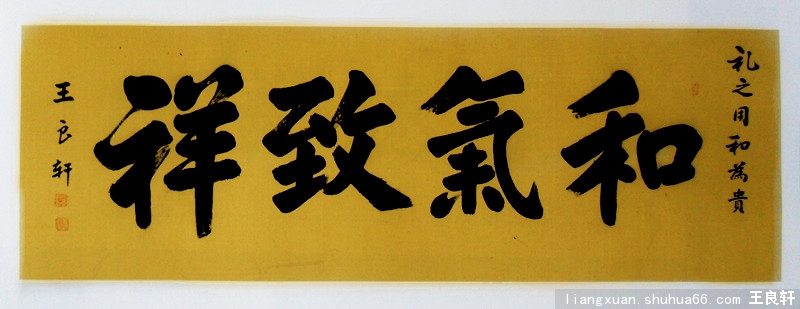 礼之用和為貴
和氣致祥
王良轩
liangxuan.shuhua66.com 王良轩